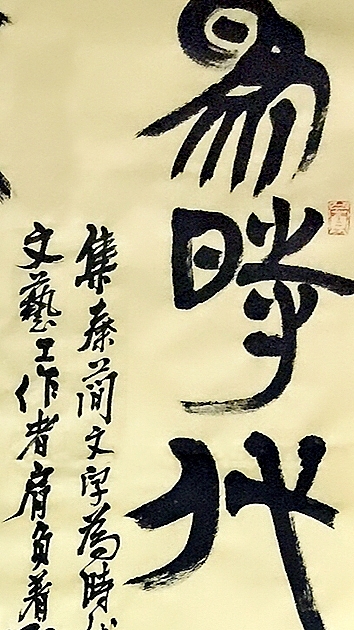 時代
集秦簡文字為時
文藝工作者肩負着